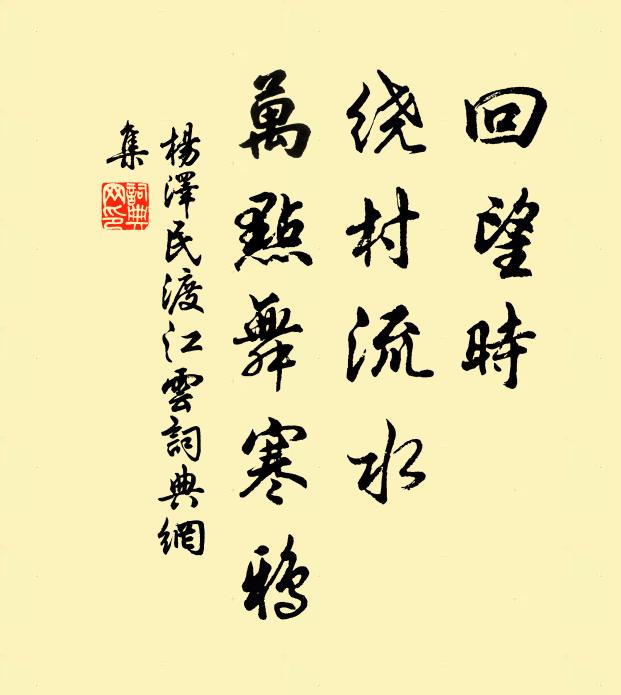 回望時
绕村流水
萬點舞寒鴉
楊澤民渡江雲詞典網
集
詞典
网印